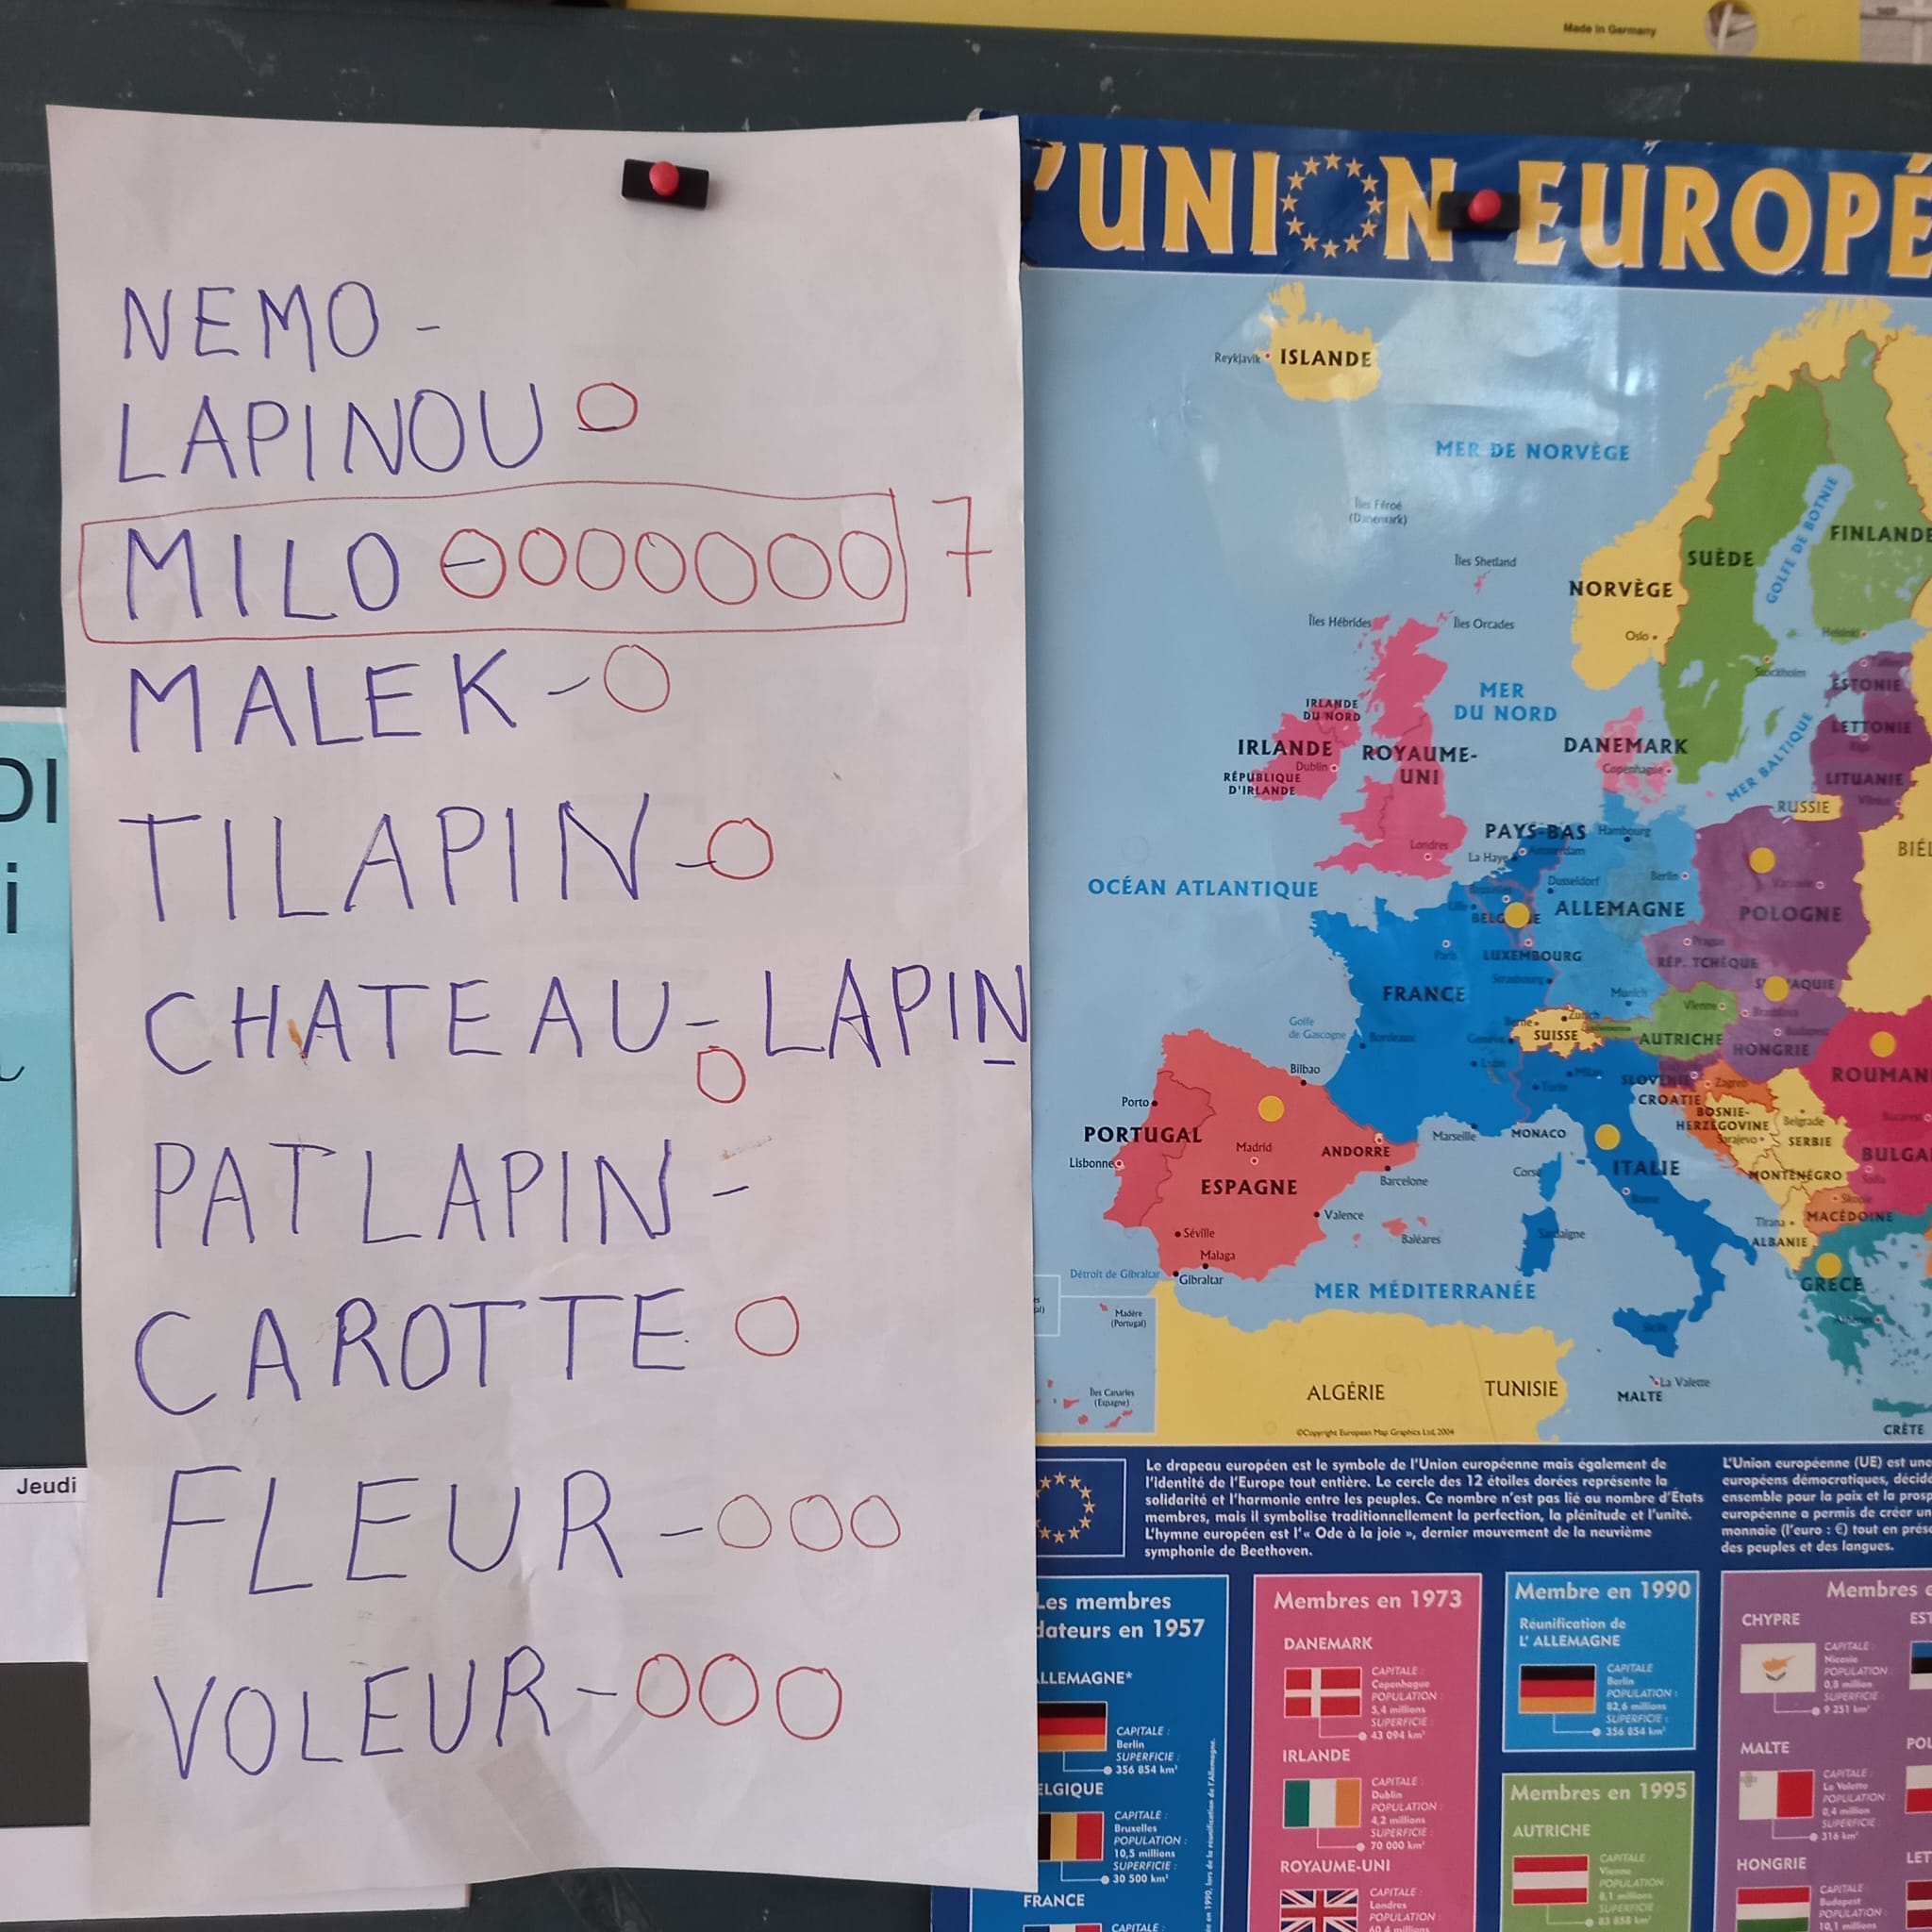 Made in Germany
NEMO -
LAPINOU O
MILO - OOOOOOO 7
MALEK - O
TILAPIN - O
CHATEAU - LAPIN
O
PATLAPIN -
CAROTTE O
FLEUR - OOO
VOLEUR - OOO
DI
i
Jeudi
'UNION EUROPÉ
Reykjavik
ISLANDE
MER DE NORVÈGE
Îles Féroé
(Danemark)
GOLFE DE BOTNIE
FINLANDE
SUÈDE
Îles Shetland
NORVÈGE
Îles Hébrides
Îles Orcades
Oslo
Helsinki
Stockholm
ESTONIE
MER
DU NORD
IRLANDE
DU NORD
LETTONIE
Riga
IRLANDE
Dublin
RÉPUBLIQUE
D'IRLANDE
ROYAUME-
UNI
DANEMARK
Copenhague
MER BALTIQUE
LITUANIE
Vilnius
RUSSIE
PAYS-BAS
Hambourg
Londres
La Haye
Amsterdam
BIÉL
OCÉAN ATLANTIQUE
Dusseldorf
Berlin
Varsovie
Lille
BELG E
ALLEMAGNE
POLOGNE
Paris
LUXEMBOURG
Prague
RÉP. TCHÈQUE
Strasbourg
FRANCE
Munich
Vienne
S AQUIE
Bratislava
Golfe
de Gascogne
Bordeaux
Berne
Zurich
SUISSE
AUTRICHE
Budapest
HONGRIE
Genève
Lyon
Milan
Turin
SLOVÉNIE
Zagreb
CROATIE
ROUMAN
Bilbao
Porto
PORTUGAL
Lisbonne
Madrid
ESPAGNE
ANDORRE
Marseille
MONACO
BOSNIE-
HERZÉGOVINE
Sarajevo
Belgrade
SERBIE
Bucarest
BULGA
Sofia
Barcelone
Corse
ITALIE
Rome
MONTÉNÉGRO
Skopje
MACÉDOINE
Tirana
ALBANIE
Valence
Baléares
Sardaigne
Séville
Malaga
Détroit de Gibraltar
Gibraltar
MER MÉDITERRANÉE
GRÈCE
Athènes
Sicile
Madère
(Portugal)
Îles Canaries
(Espagne)
ALGÉRIE
TUNISIE
La Valette
MALTE
CRÈTE
©Copyright European Map Graphics Ltd. 2004
Le drapeau européen est le symbole de l'Union européenne mais également de
l'identité de l'Europe tout entière. Le cercle des 12 étoiles dorées représente la
solidarité et l'harmonie entre les peuples. Ce nombre n'est pas lié au nombre d'États
membres, mais il symbolise traditionnellement la perfection, la plénitude et l'unité.
L'hymne européen est l'« Ode à la joie », dernier mouvement de la neuvième
symphonie de Beethoven.
L'Union européenne (UE) est une
européens démocratiques, décidé
ensemble pour la paix et la prosp
européenne a permis de créer un
monnaie (l'euro : €) tout en prése
des peuples et des langues.
Les membres
dateurs en 1957
LLEMAGNE*
CAPITALE :
Berlin
SUPERFICIE :
356 854 km²
ELGIQUE
CAPITALE :
Bruxelles
POPULATION :
10,5 millions
SUPERFICIE :
30 500 km²
FRANCE
CAPITALE :
Membres en 1973
DANEMARK
CAPITALE :
Copenhague
POPULATION :
5,4 millions
SUPERFICIE :
43 094 km²
IRLANDE
CAPITALE :
Dublin
POPULATION :
4,2 millions
SUPERFICIE :
70 000 km²
ROYAUME-UNI
CAPITALE :
Londres
POPULATION :
60,4 millions
Membre en 1990
Réunification de
L' ALLEMAGNE
CAPITALE
Berlin
POPULATION :
82,6 millions
SUPERFICIE :
356 854 km²
Membres en 1995
AUTRICHE
CAPITALE :
Vienne
POPULATION :
8,1 millions
SUPERFICIE :
83 858 km²
Membres e
CHYPRE
CAPITALE :
Nicosie
POPULATION :
0,8 million
SUPERFICIE :
9 251 km²
EST
MALTE
CAPITALE :
La Valette
POPULATION :
0,4 million
SUPERFICIE :
316 km²
POL
HONGRIE
CAPITALE :
Budapest
POPULATION :
10,1 millions
LET